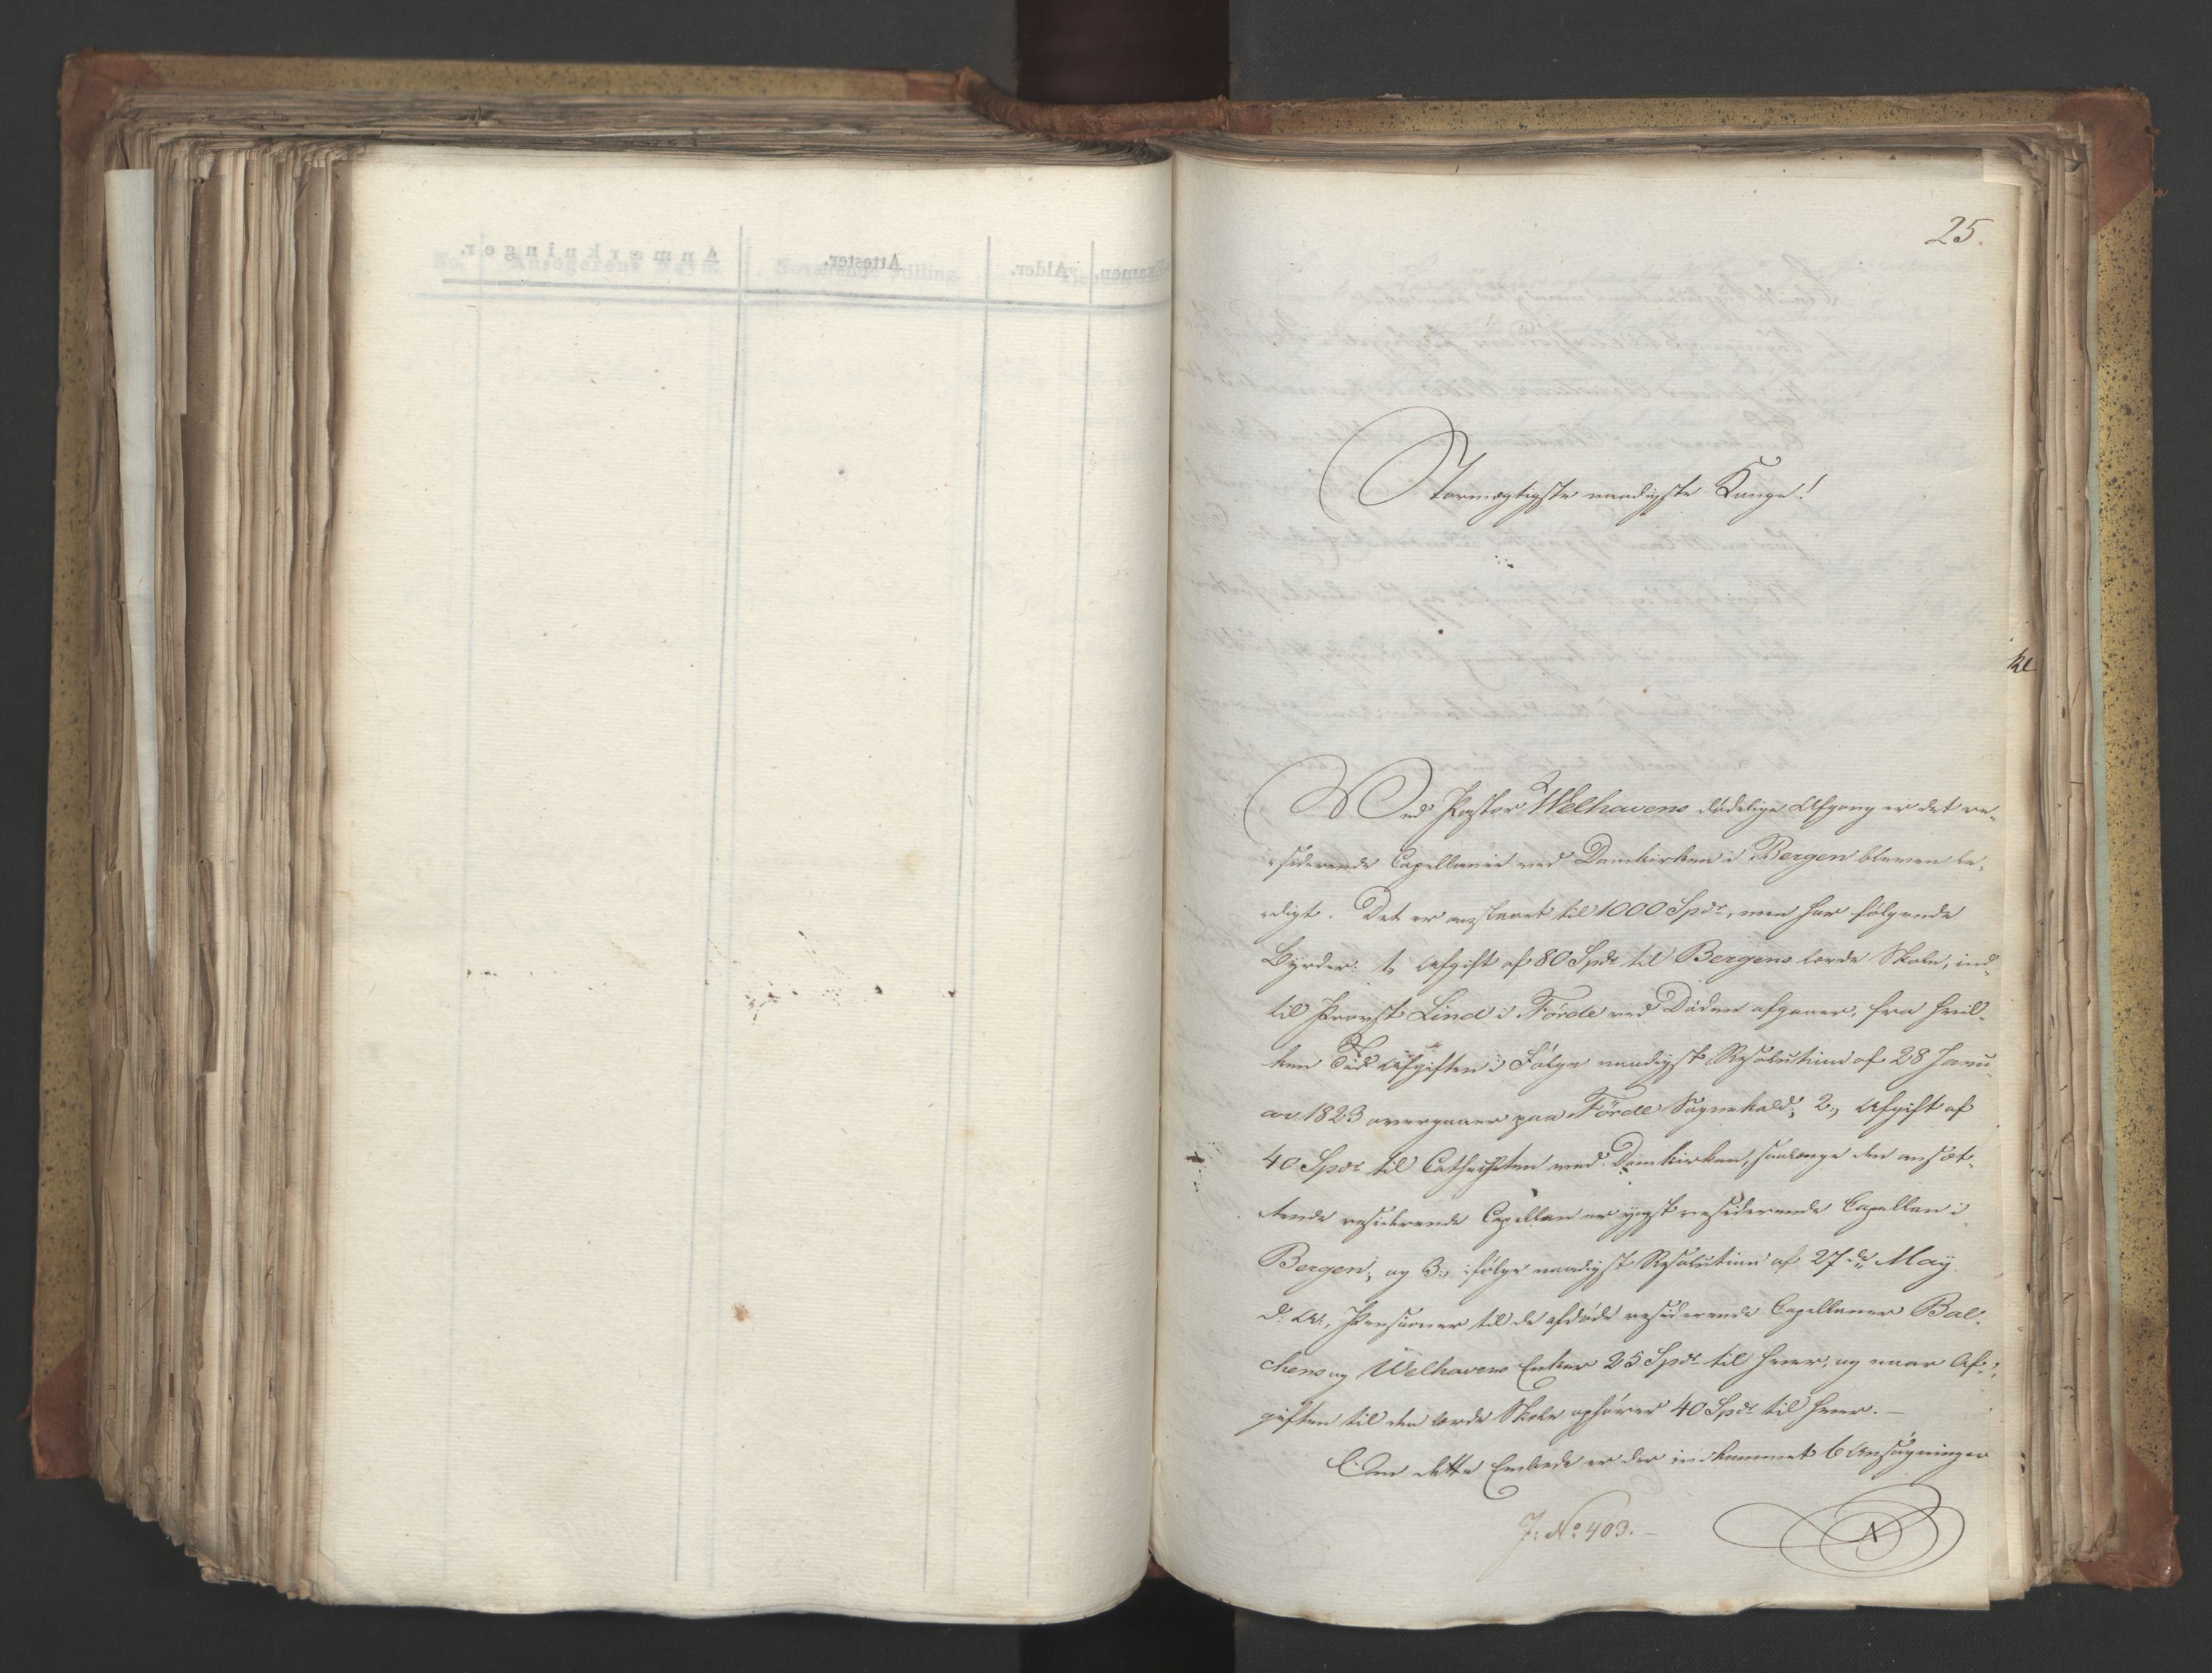 25.
Stormægtigste naadigste Konge!
Ved Pastor Welhavens dödelige Afgang er det re-
siderende Capellanie ved Domkirken i Bergen bleven le-
digt. Det er anslaaet til 1000 Spdr, men har fölgende
Byrder: 1, Afgift af 80 Spdr til Bergens lærde Skole, ind-
til Provst Lind i Förde ved Döden afgaaer, fra hvil-
ken Tid Afgiften i Fölge naadigst Resolution af 28 Janu-
ar 1823 overgaaer paa Förde Sognekald; 2, Afgift af
40 Spdr til Catecheten ved Domkirken, saalænge den ansæt-
tende residerende Capellan er yngst residerende Capellan i
Bergen; og 3, ifölge naadigst Resolution af 27de May
d. A., Pensioner til de afdöde residerende Capellaner Bal-
chens og Welhavens Enker 25 Spdr til hver, og naar Af-
giften til den lærde Skole ophörer 40 Spdr til hver. -
Om dette Embede er der indkommet 6 Ansögninger
J: No 403. -
Anmærkninger.
Attester.
Alder.
Examen.
No.